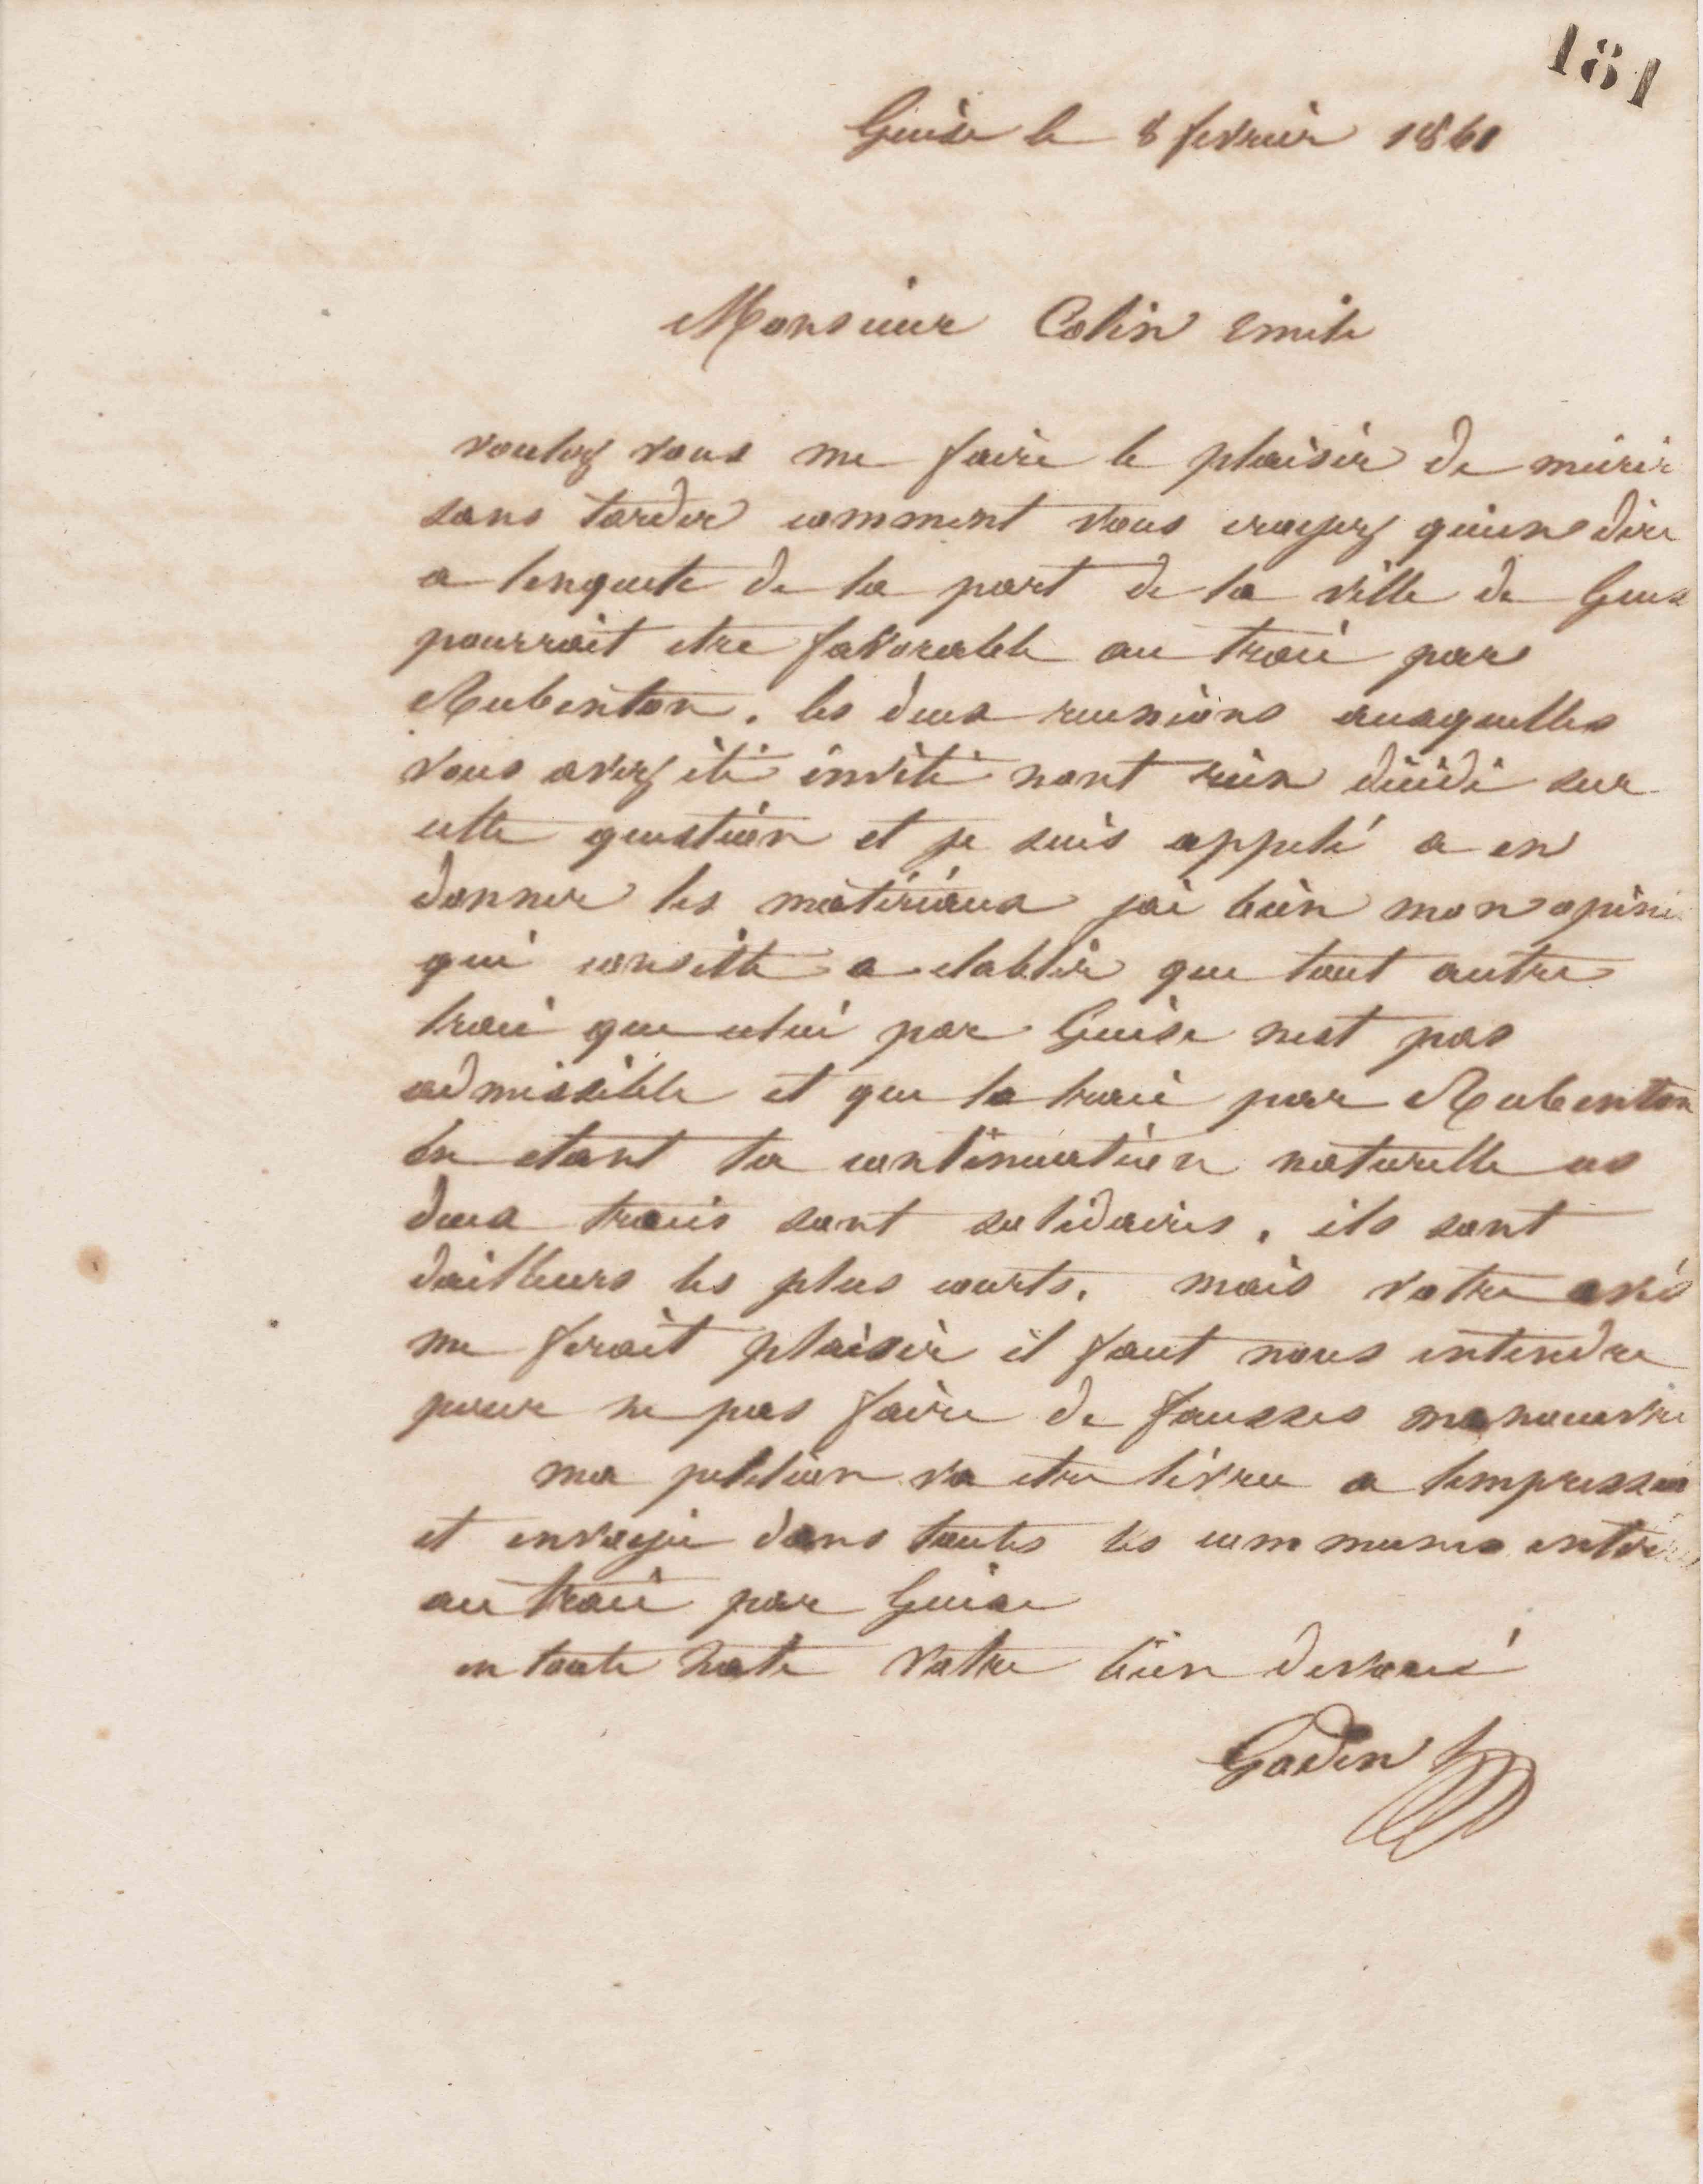 181
Guise le 8 fevrier 1861
Monsieur Colin Emile
voulez vous me faire le plaisir de
sans tarder comment vous croyez qu'un dire
a lenquete de la part de la ville de Guise
pourrait etre favorable au tracé par
Rubenton. les deux reunions auxquelles
vous avez été invité nont rien décidé sur
cette question et je suis appelé a en
donner les matériaux jai bien mon opini
qui consiste a etablir que tout autre
tracé que celui par Guise nest pas
admissible et que le tracé par Rubenton
en etant la continuation naturelle ces
deux tracés sont solidaires. ils sont
dailleurs les plus courts. mais votre avis
me ferait plaisir il faut nous entendre
pour ne pas faire de fausses manoeuvre
ma petition va etre livree a limpression
et envoyée dans toutes les communes
au tracé par Guise
en toute hate votre bien devoué
Godin